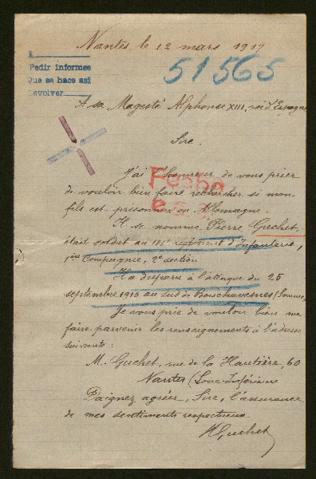 Nantes le 12 mars 1917
Pedir informes
Que se hace asi
Devolver
51565
A sa Majesté Alphonse XIII, roi d'Espagne
Sire,
J'ai l'honneur de vous prier
de vouloir bien faire rechercher si mon
fils est prisonnier en Allemagne.
Il se nomme Pierre Guchet,
était soldat au régiment d'Infanterie,
Compagnie, 2e section
Il a disparu à l'attaque du 25
septembre 1916 au sud de Bouchavesnes (Somme)
Je vous prie de vouloir bien me
faire parvenir les renseignements à l'adresse
suivante :
M. Guchet, rue de la Hautière, 60
Nantes (Loire-Inférieure
Daignez agréer, Sire, l'assurance
de mes sentiments respectueux.
Guchet